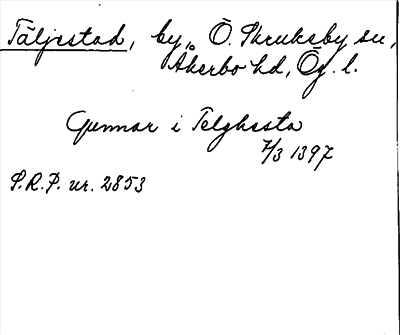 Täljestad, by, Ö. Skruksby sn,
Åkerbo hd, Ög. l.
Gunnar i Telghesta
7/3 1397
S.R.P. nr. 2853